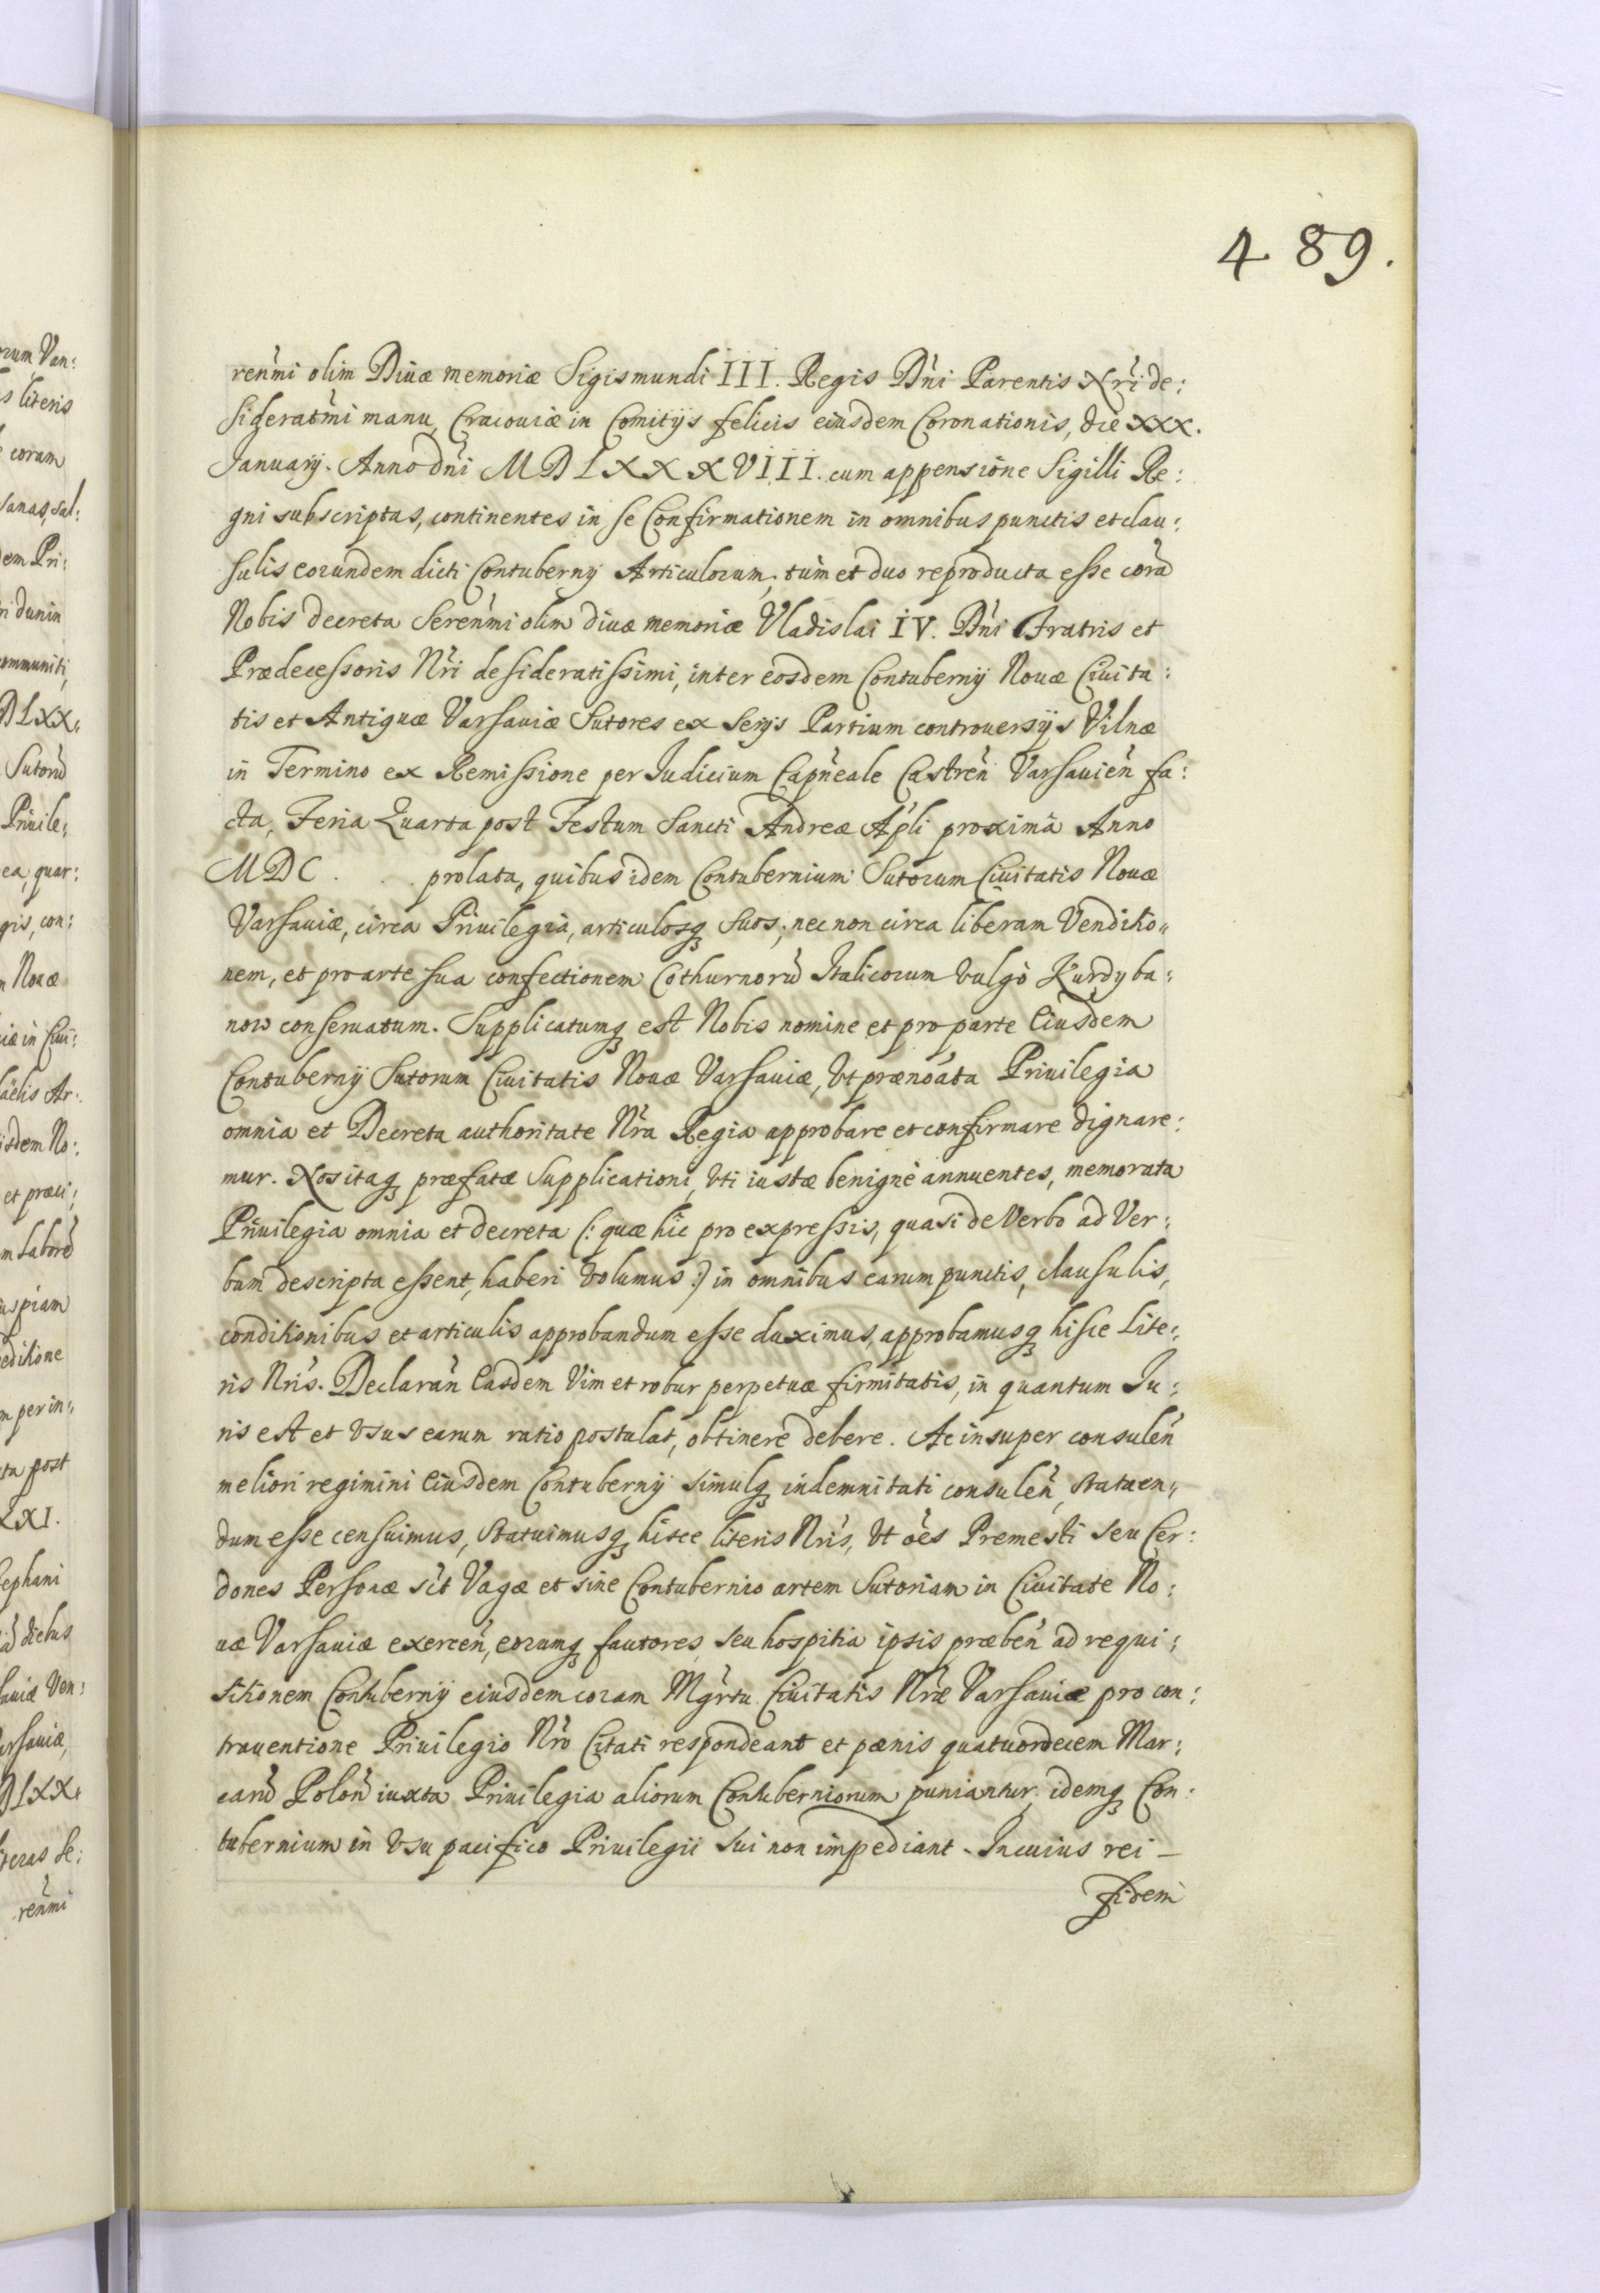 489.
ren̄mi olim Diuæ memoriæ Sigismundi III. Regis Dn̄i Parentis Nr̄i de:
siderat̄mi manu, Cracouiæ in Comitijs felicis eiusdem Coronationis, die XXX.
Januarij. Anno dn̄i MDLXXXVIII. cum appensione Sigilli Re:
gni subscriptas, continentes in se Confirmationem in omnibus punctis et clau:
sulis eorundem dicti Contubernij Articulorum, tum et duo reproducta esse corā
Nobis decreta Seren̄mi olim diuæ memoriæ Vladislai IV. Dn̄i Fratris et
Prædecessoris Nr̄i desideratissimi, inter eosdem Contubernij Nouæ Ciuita:
tis et Antiquæ Varsauiæ Sutores ex serijs Partium controuersijs Vilnæ
in Termino ex Remissione per Judicium Capn̄eale Castren̄ Varsauien̄ fa:
cta, Feria Quarta post Festum Sancti Andreæ Ap̄li proximā Anno
MDC . . . prolata, quibus idem Contubernium Sutorum Ciuitatis Nouæ
Varsauiæ, circa Priuilegia, articulosq3 suos, nec non circa liberam Venditio:
nem, et pro arte sua confectionem Cothurnorū Italicorum vulgò Kurdyba:
now conseruatum. Supplicatumq3 est Nobis nomine et pro parte Eiusdem
Contubernij Sutorum Ciuitatis Nouæ Varsauiæ, vt prænōata Priuilegia
omnia et Decreta authoritate Nr̄a Regia approbare et confirmare dignare:
mur. Nos itaq3 præfatæ Supplicationi, vti iustæ benignè annuentes, memorata
Priuilegia omnia et decreta (: quæ hic pro expressis, quasi de Verbo ad Ver:
bum descripta essent, haberi volumus :) in omnibus earum punctis, clausulis,
conditionibus et articulis approbandum esse duximus, approbamusq3 hisce Lite:
ris Nr̄is. Declaran̄ Easdem Vim et robur perpetuæ firmitatis, in quantum Ju:
ris est et vsus earum ratio postulat, obtinere debere. Ac insuper consulen̄
meliori regimini Eiusdem Contubernij simulq3 indemnitati consulen̄, statuen:
dum esse censuimus, statuimusq3 hisce literis Nr̄is, vt ōes Premesti seu Cer:
dones Personæ sit Vagæ et sine Contubernio artem Sutoriam in Ciuitate No:
uæ Varsauiæ exercen̄, eorumq3 fautores, seu hospitia ipsis præben̄ ad requi:
sitionem Contubernij eiusdem coram Mgr̄tu Ciuitatis Nr̄æ Varsauiæ pro con:
trauentione Priuilegio Nr̄o Citati respondeant et pænis quatuordecem Mar:
carū Polon̄ iuxta Priuilegia aliorum Contuberniorum puniantur, idemq3 Con:
tubernium in vsu pacifico Priuilegii sui non impediant. In cuius rei –
fidem